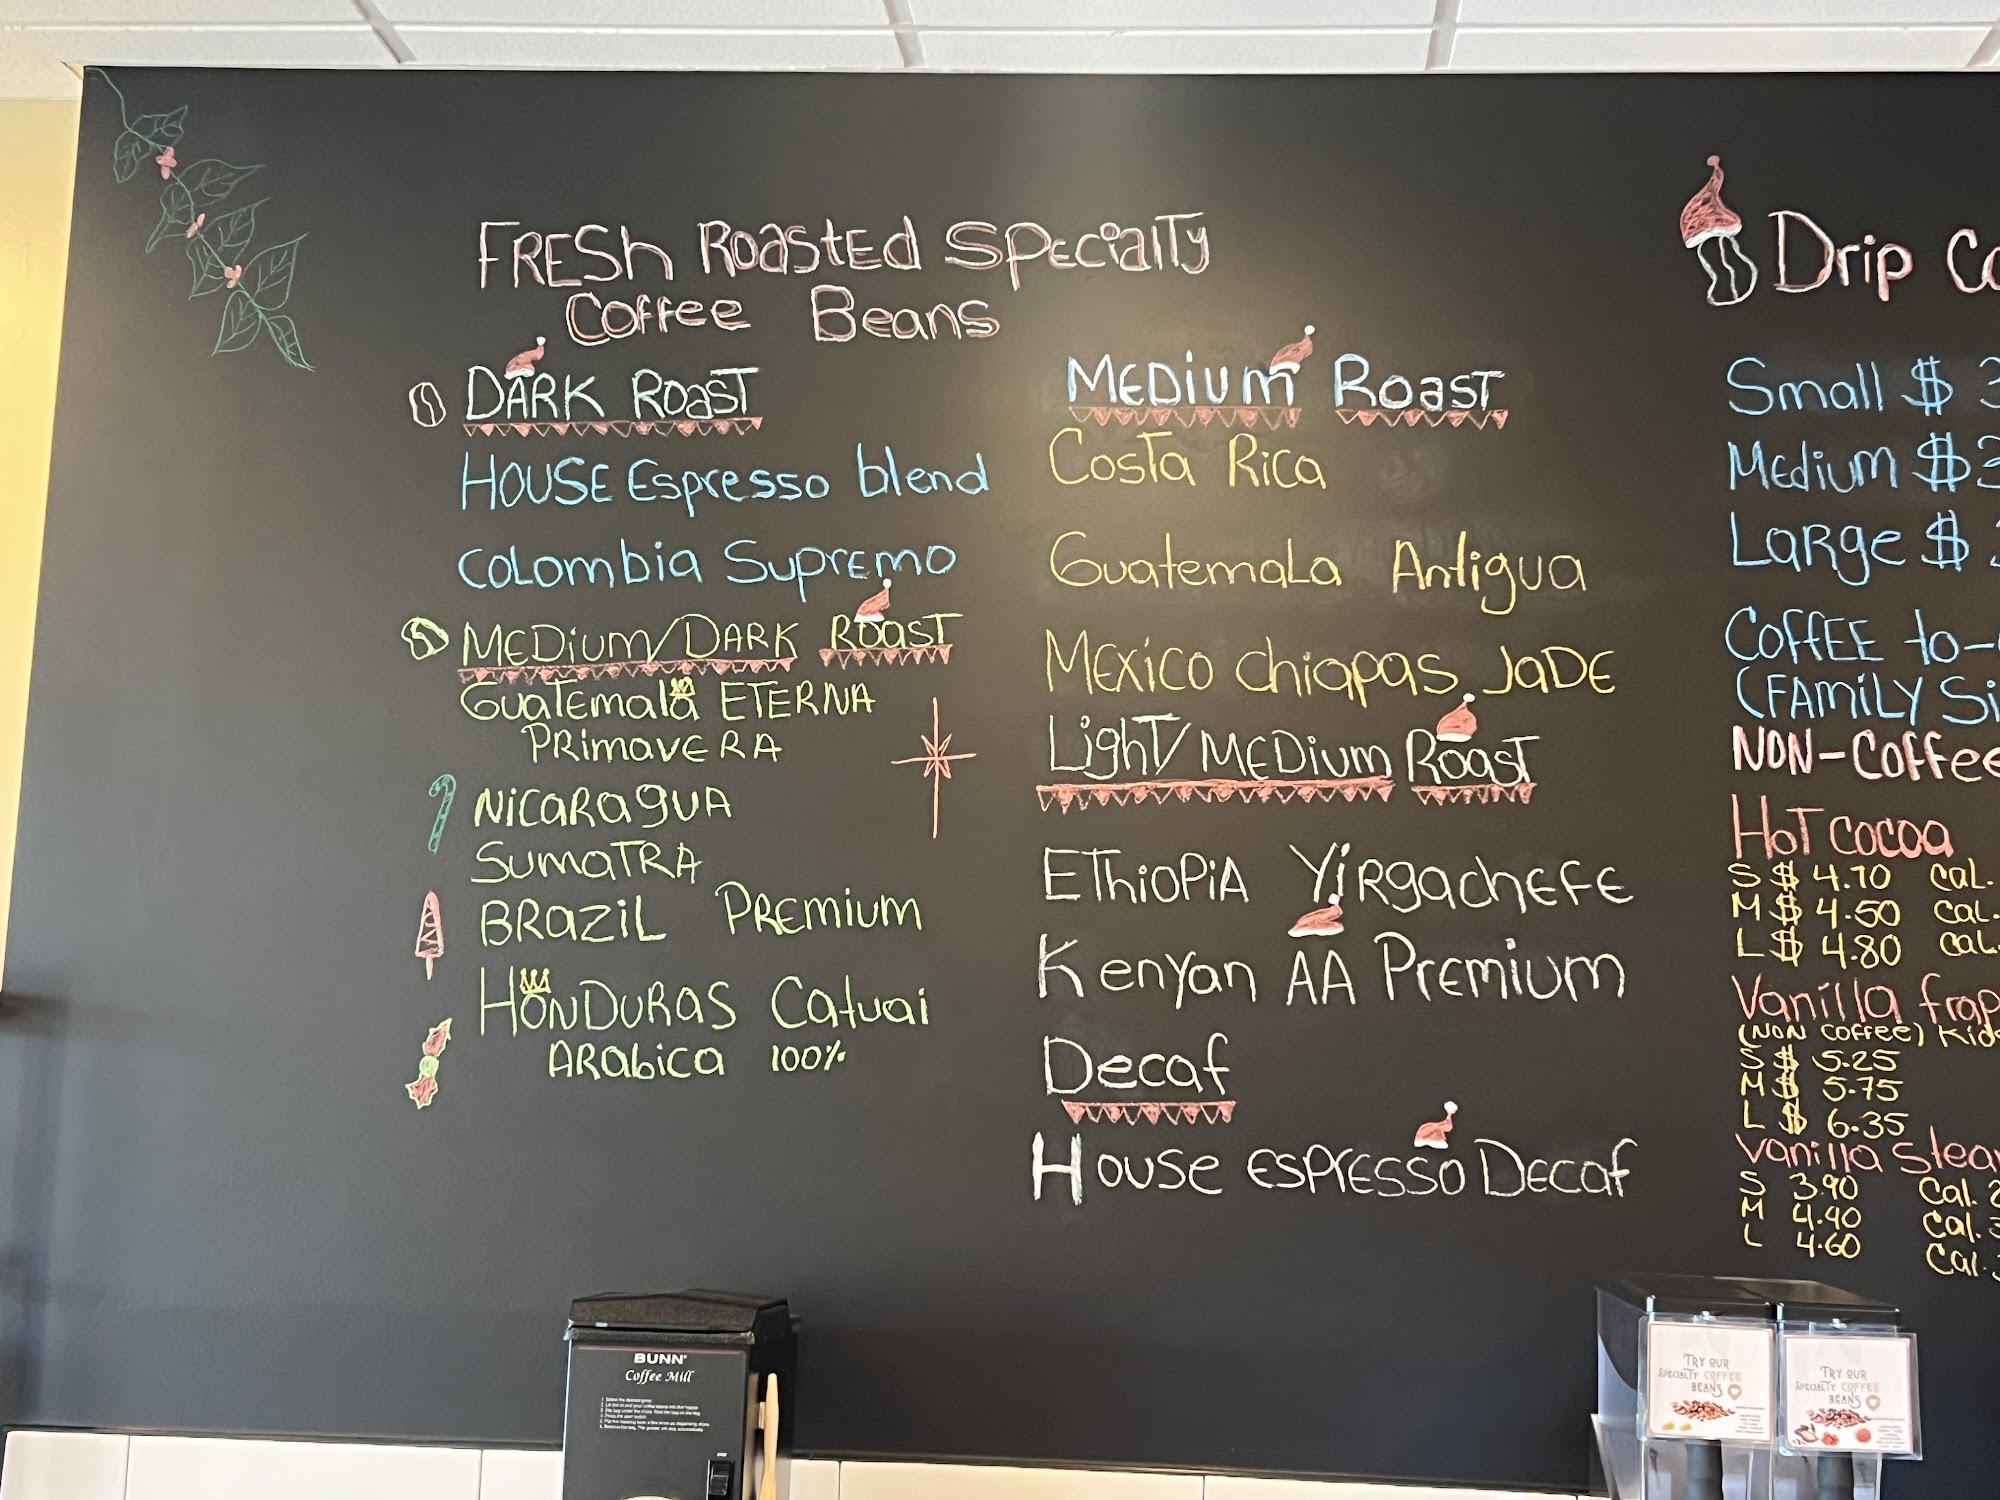 FRESh RoasTEd SPEciaLTy
Coffee Beans
DARK RoasT
HOUSE Espresso blend
COLOmbia SuprEMO
MEDiUm/DARK RoasT
GuaTEmala ETERNA
PRimavERA
NiCaRagUA
SumaTRA
BRaZiL PREmium
HONDURAS Catuai
ARabica 100%
MEDiUm RoasT
CosTa Rica
GuatemaLa Antigua
MEXICO Chiapas JaDE
LighT/MEDium RoasT
EThiOPiA YiRgachEFE
Kenyan AA PrEmium
Decaf
House ESPRESSO Decaf
Drip
Small $
MEdium $
LaRge $
COffEE to-
(FAmiLY
NON-Coffee
HoT cocoa
S $ 4.10 CaL.
M $ 4.50 CaL.
L $ 4.80 CaL.
Vanilla
(NON Coffee)
S $ 5.25
M $ 5.75
L $ 6.35
Vanilla
S 3.90 Cal.
M 4.40 Cal.
L 4.60 Cal.
BUNN
Coffee Mill
TRY OUR
SPECIALTY COFFEE
BEANS
TRY OUR
SPECIALTY COFFEE
BEANS